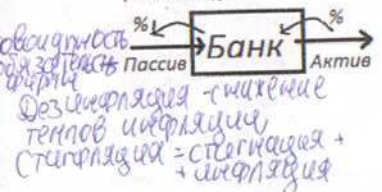 %↓ %
Банк
Пассив Актив
Дезинфляция - снижение
темпов инфляции
Стагфляция = стагнация +
+ инфляция